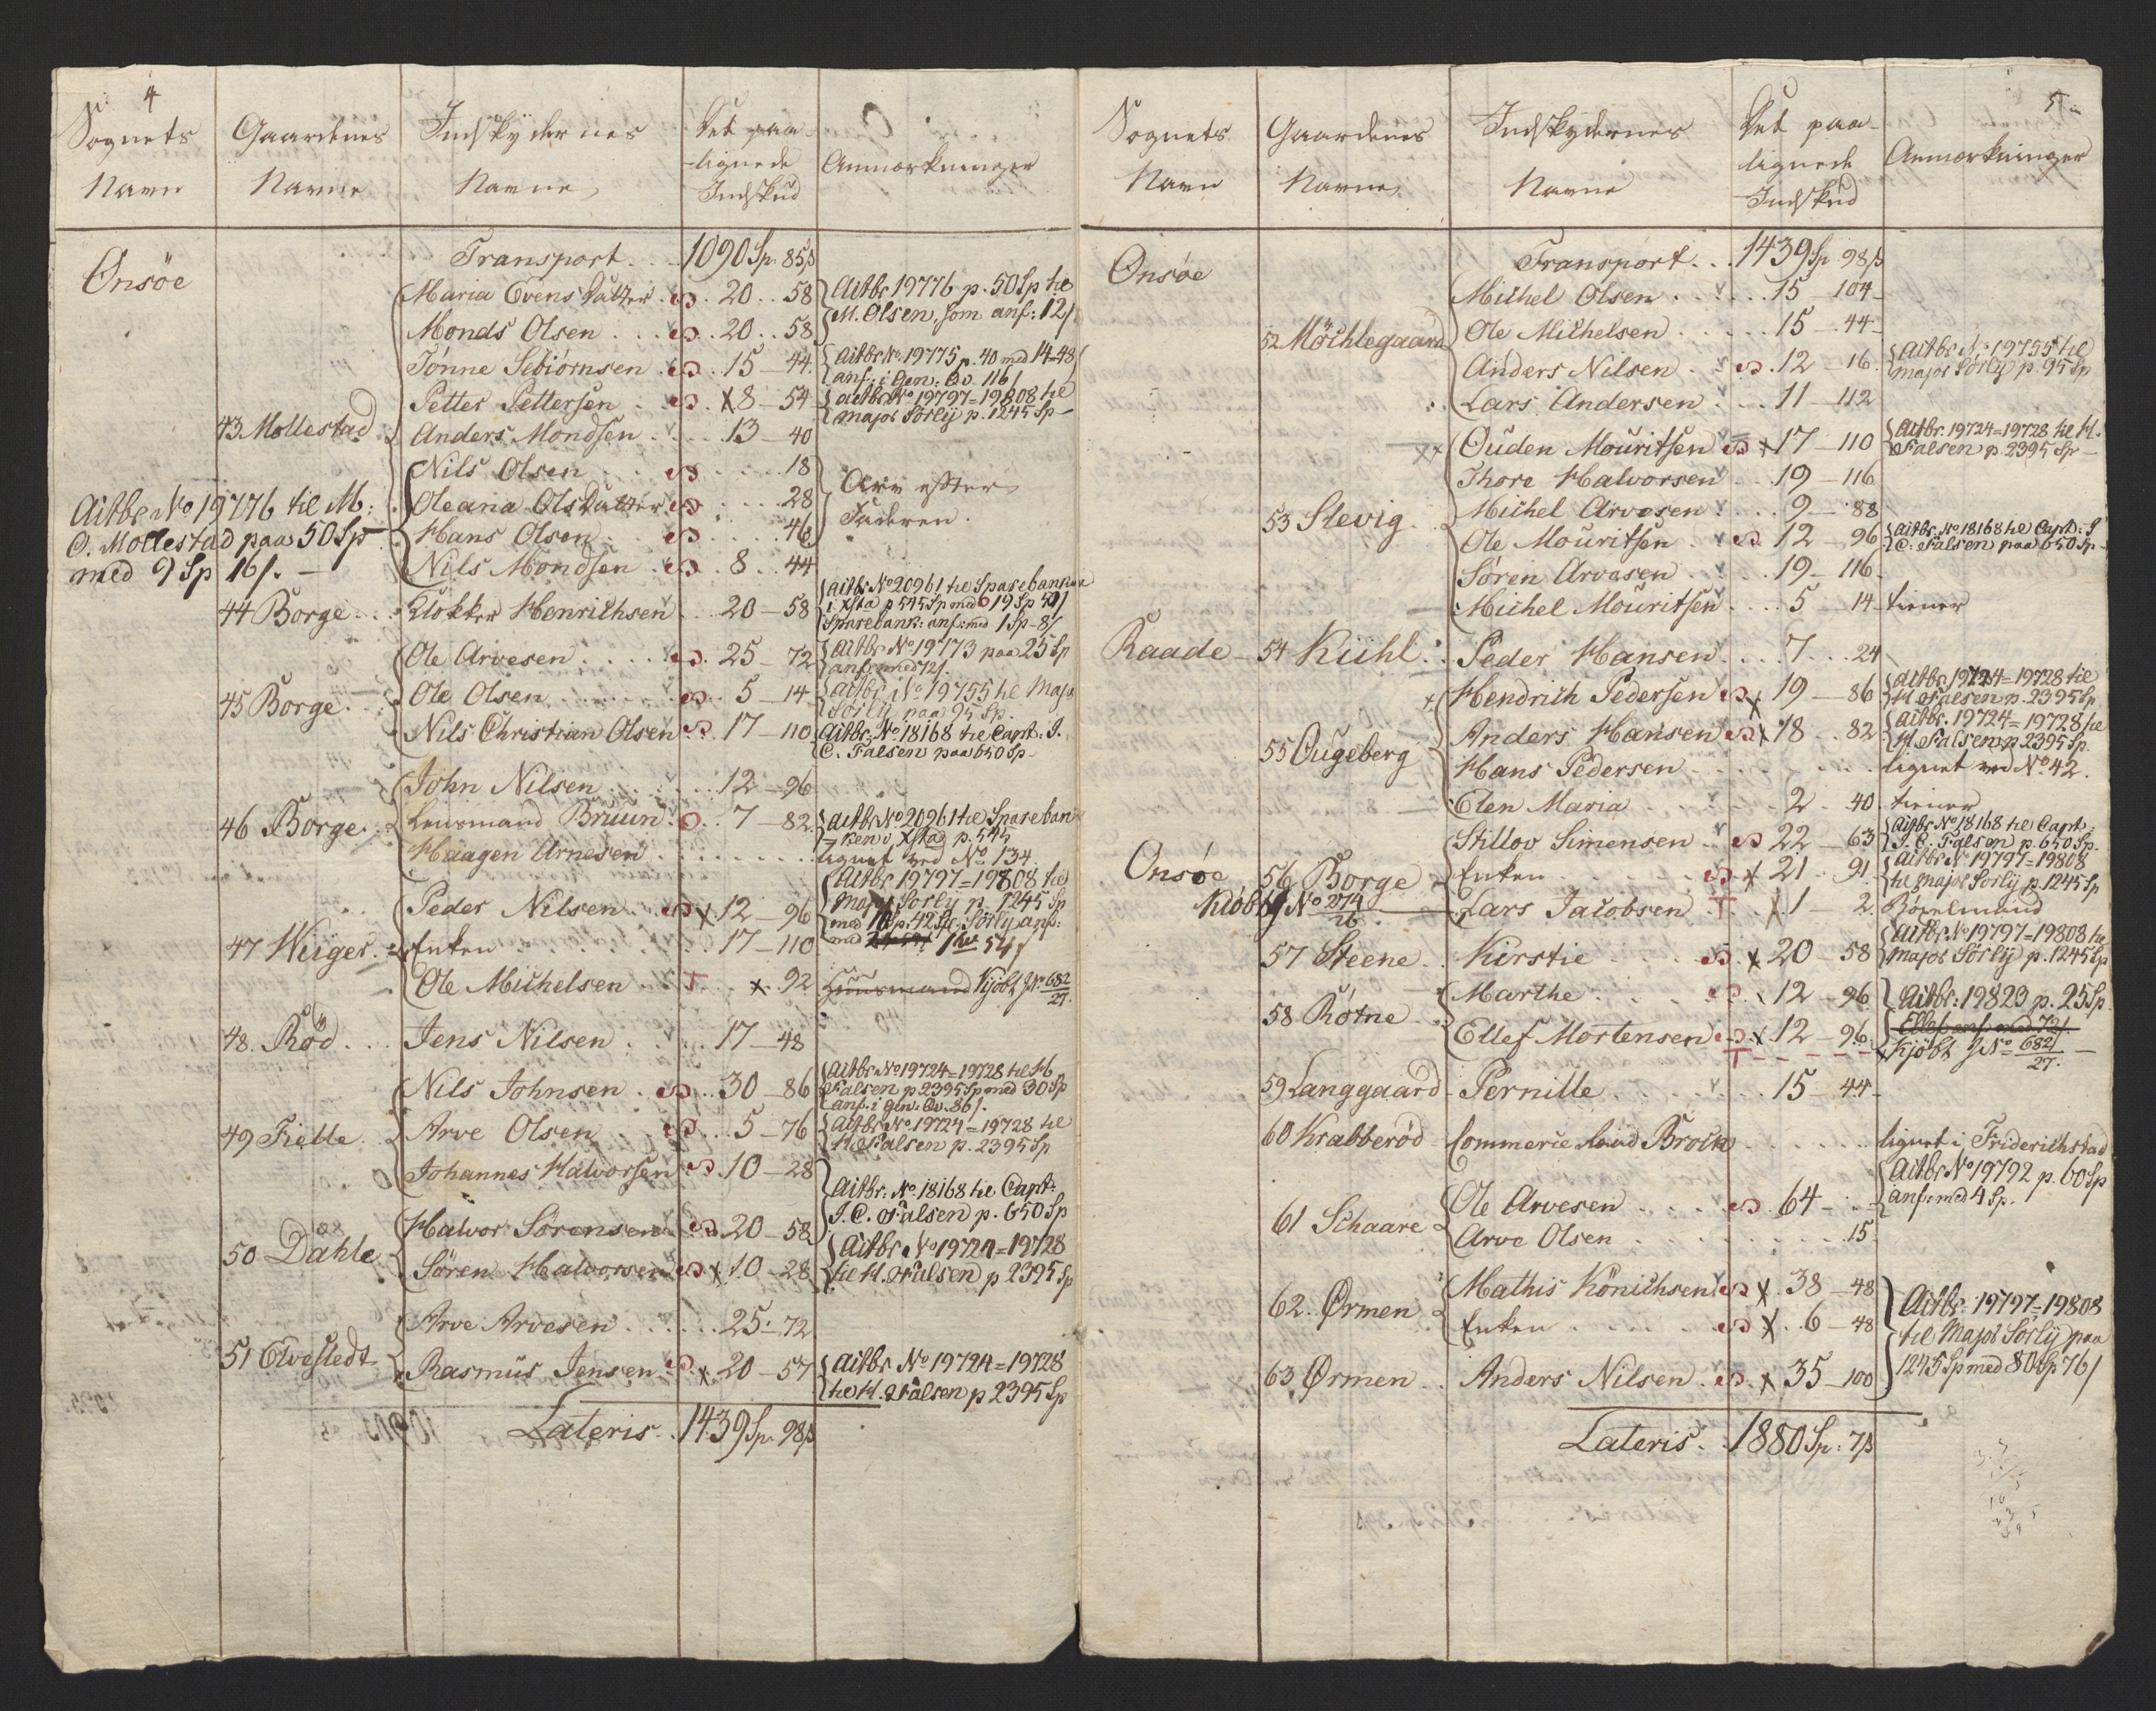 4
Sognets Navn
Gaardenes Navne
Indskydernes Navne
Det paa-lignede Indskud
Anmærkninger
Onsöe
Transport . . . 1090 Sp. 85 ß
Maria Evens Datter . 20 . . 58 Aitbr 19776 p. 50 Sp til
Monds Olsen . . . 20 . . 58 M. Olsen, som anf: 12/
Tønne Sebiörnsen . 15 - 44. Aitbr No. 19775 p. 40 med 14-48/
anf: i Gen: Qv. 116/
Petter Pettersen . X 8 - 54 Aitbr No 19797=19808 til
Major Sörlÿ p. 1245 Sp -
43 Mollestad
Anders Mondsen . . . 13 - 40
Nils Olsen . . . 18
Oleana Ols Datter . . . 28 Arv efter
Hans Olsen . . . 46 Faderen.
Nils Mondsen . 8 . . 44
Aitbr No 19776 til M:
O. Mollestad paa 50 Sp
med 9 Sp 16/. -
44 Borge . . . Klokker Henrichsen . . 20 - 58 Aitbr No 20961 til Sparebanken
i Xsta p 545 Sp med 19 Sp 50/
Sparebank: anf: med 1 Sp - 8/
45 Borge.
Ole Arvesen . . . . 25 - 72 Aitbr No 19773 paa 25 Sp
anf: med 72/.
Ole Olsen . . . 5 - 14 Aitbr No 19755 til Major
Sörlÿ paa 95 Sp.
Nils Christian Olsen . 17 - 110 Aitbr: No 18168 til Capt: I.
C. Falsen paa 650 Sp -
46 Borge.
John Nilsen . . . 12 - 96
Lensmand Bruun . . 7 - 82. Aitbr No 20961 til Spareban
ken i Xstad p. 545
Haagen Arnesen . . . lignet ved No 134.
47 Wiiger.
Peder Nilsen . X 12 - 96 Aitbr 19797=19808 til
Major Sörlÿ p. 1245 Sp
med 10 Sp. 42 ß: Sörlÿ anf:
Enken . . . 17 - 110 med 54/
Ole Michelsen . T . . X . 92 Huusmand Kjöbt J No 682/27.
48. Röd . . . Jens Nilsen . . . 17 - 48
49 Fielle.
Nils Johnsen . . . 30 - 86 Aitbr No 19724=19728 til H
Falsen p 2395 Sp med 30 Sp
anf: i Gen: Qv. 86/.
Arve Olsen . . . 5 - 76 Aitbr No 19724=19728 til
H. Falsen p. 2395 Sp
Johannes Halvorsen . 10 - 28
Aitbr: No 18168 til Capt:
I. C. Falsen p. 650 Sp
50 Dahle
Halvor Sörensen . 20 - 58
Sören Halvorsen X 10 - 28 Aitbr No 19724=19728
til H. Falsen p 2395 Sp
51 Elvestedt
Arve Arvesen . . . 25 - 72
Rasmus Jensen . X 20 - 57 Aitbr No 19724=19728
til H. Falsen p 2395 Sp
Lateris . . 1439 Sp. 98 ß
5
Sognets Navn
Gaardenes Navne
Indskydernes Navne
Det paa-lignede Indskud
Anmærkninger
Onsöe
Transport . . . 1439 Sp 98 ß
52 Möchlegaard
Michel Olsen . . . . 15 - 104 -
Ole Michelsen . . . 15 - 44 -
Anders Nilsen . . 12 - 16. Aitbr No 19755 til
Major Sörlÿ p. 95 Sp
Lars Andersen . . . 11 - 112
53 Slevig.
Ouden Mouritsen X 17 - 110 Aitbr. 19724=19728 til H.
Falsen p. 2395 Sp -
Thore Halvorsen . . 19 - 116
Michel Arvesen . . . 9 - 88
Ole Mouritsen . 12 - 96 Aitbr. No 18168 til Capt: I
C. Falsen paa 650 Sp -
Sören Arvesen . . . 19 - 116
Michel Mouritsen . . 5 - 14 - tiener
Raade - 54 Kiihl . . Peder Hansen . . . 7 . . . 24
55 Ougeberg
Hendrich Pedersen X 19 - 86 Aitbr 19724=19728 til
H Falsen p. 2395 Sp
Anders Hansen X 18 . . 82 Aitbr. 19724=19728 til
H Falsen p 2395 Sp.
Hans Pedersen . . . lignet ved No 42.
Elen Maria . . . 2 . 40. tiener
Onsöe 56 Borge
Stillov Simensen . 22 - 63 Aitbr No 18168 til Capt.
I. C. Falsen p. 650 Sp.
Enken . . . X 21 . . 91 Aitbr No 19797=19808
til Major Sörlÿ p. 1245 Sp
Kiöbt J No 274/26 . Lars Jacobsen . T . . X 1 - 2.
57 Steene . Kirstie . . . X 20 - 58 Aitbr No 19797=19808 til
Major Sörlÿ p. 1245 Sp
58 Rötne
Marthe . . . 12 - 96 Aitbr: 19823 p. 25 Sp
Ellef Mortensen X 12 - 96. Ellef anf med 72/
T Kjöbt J No 682/27.
59 Langgaard - Pernille . . . 15 - 44 -
60 Krabberöd - Commerce Raad Brock . . . lignet i Friderichstad
61 Schaare
Ole Arvesen . . . 64 - Aitbr No 19792 p. 60 Sp
anf: med 4 Sp.
Arve Olsen . . . 15 -
62. Ørmen
Mathis Könichsen X . 38 - 48 Aitbr. 19797=19808
Enken . . . X . . 6 - 48 til Major Sörlÿ paa
63 Ørmen . . Anders Nilsen . X 35 - 100 1245 Sp med 80 Sp 76/
Lateris . . 1880 Sp: 7 ß